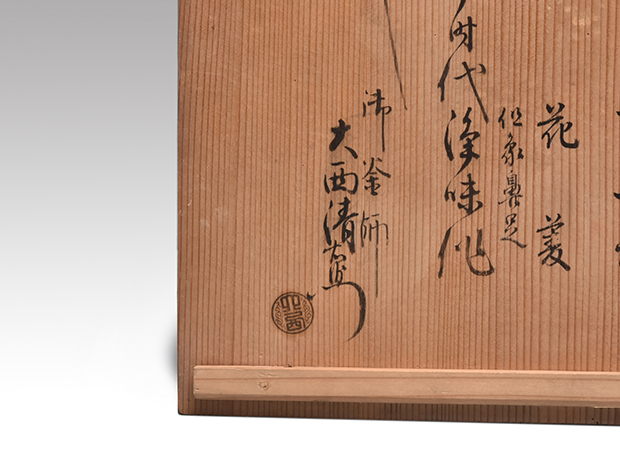 花菱
但象鼻足
时代浄味作
御釜師
大西清右衛門
大西